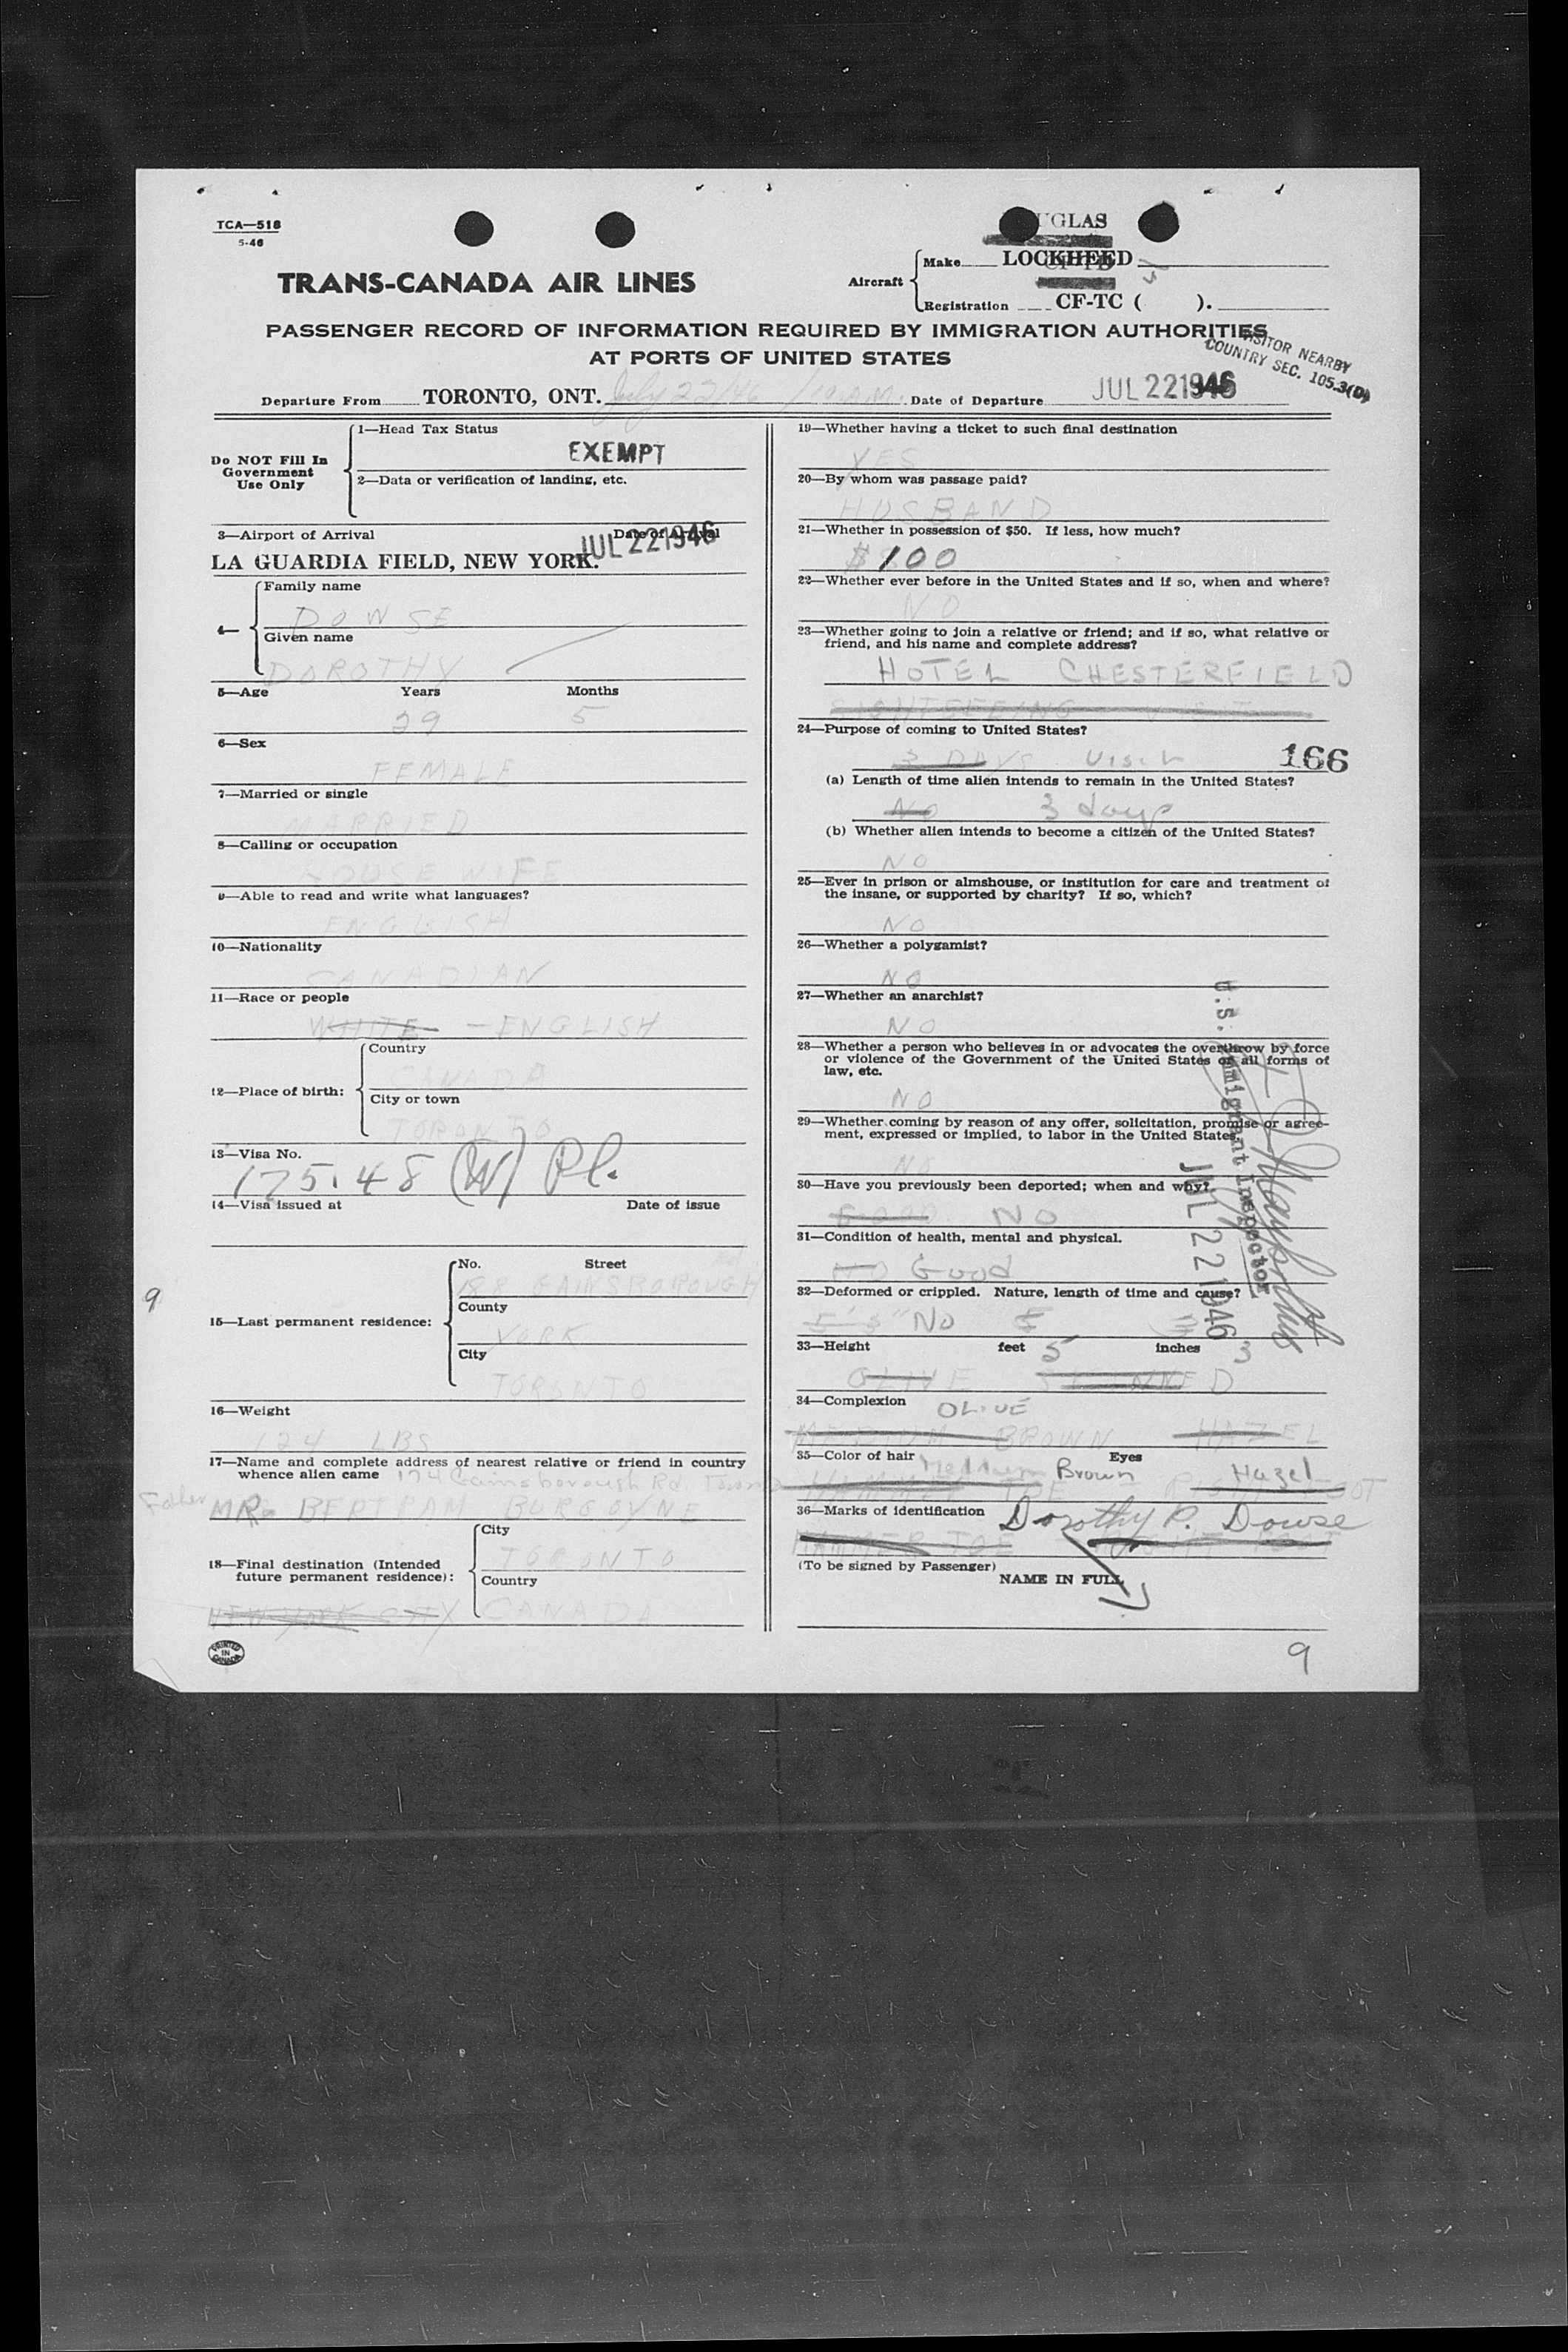 TCA—518
5-46
UGLAS
TRANS-CANADA AIR LINES
Aircraft
Make LOCKHEED
Registration CF-TC ( ).
PASSENGER RECORD OF INFORMATION REQUIRED BY IMMIGRATION AUTHORITIES
AT PORTS OF UNITED STATES
VISITOR NEARBY
COUNTRY SEC. 105.3(D)
Departure From TORONTO, ONT. July 22/46 Date of Departure JUL 22 1946
Do NOT Fill In
Government
Use Only
1—Head Tax Status
EXEMPT
2—Data or verification of landing, etc.
3—Airport of Arrival Date of Arrival
LA GUARDIA FIELD, NEW YORK. JUL 22 1946
4—
Family name
DOWSE
Given name
DOROTHY
5—Age Years Months
29 5
6—Sex
FEMALE
7—Married or single
MARRIED
8—Calling or occupation
HOUSE WIFE
9—Able to read and write what languages?
ENGLISH
10—Nationality
CANADIAN
11—Race or people
WHITE — ENGLISH
12—Place of birth:
Country
CANADA
City or town
TORONTO
13—Visa No.
175.48 (W) Pl.
14—Visa issued at Date of issue
9
15—Last permanent residence:
No. Street
GAINSBOROUGH
County
YORK
City
TORONTO
16—Weight
124 LBS
17—Name and complete address of nearest relative or friend in country
whence alien came 174 Gainsborough Rd.
Father MR BERTRAM BURGOYNE
18—Final destination (Intended
future permanent residence):
City
TORONTO
Country
NEW YORK CITY CANADA
PRINTED
IN
CANADA
19—Whether having a ticket to such final destination
YES
20—By whom was passage paid?
HUSBAND
21—Whether in possession of $50. If less, how much?
$100
22—Whether ever before in the United States and if so, when and where?
NO
23—Whether going to join a relative or friend; and if so, what relative or
friend, and his name and complete address?
HOTEL CHESTERFIELD
SIGHTSEEING VISIT
24—Purpose of coming to United States?
3 DAYS Visit 166
(a) Length of time alien intends to remain in the United States?
NO 3 days
(b) Whether alien intends to become a citizen of the United States?
NO
25—Ever in prison or almshouse, or institution for care and treatment of
the insane, or supported by charity? If so, which?
NO
26—Whether a polygamist?
NO
27—Whether an anarchist?
NO
28—Whether a person who believes in or advocates the overthrow by force
or violence of the Government of the United States or all forms of
law, etc.
NO
29—Whether coming by reason of any offer, solicitation, promise or agree-
ment, expressed or implied, to labor in the United States.
NO
30—Have you previously been deported; when and why?
GOOD NO
31—Condition of health, mental and physical.
NO Good
32—Deformed or crippled. Nature, length of time and cause?
5' 3" No
33—Height feet 5 inches 3
OLIVE SKINNED
34—Complexion OLIVE
MEDIUM BROWN HAZEL
35—Color of hair Medium Brown Eyes Hazel
HAMMER TOE RIGHT FOOT
36—Marks of identification Dorothy P. Dowse
HAMMER TOE RIGHT FOOT
(To be signed by Passenger)
NAME IN FULL
U.S. Immigrant Inspector
JUL 22 1946
9